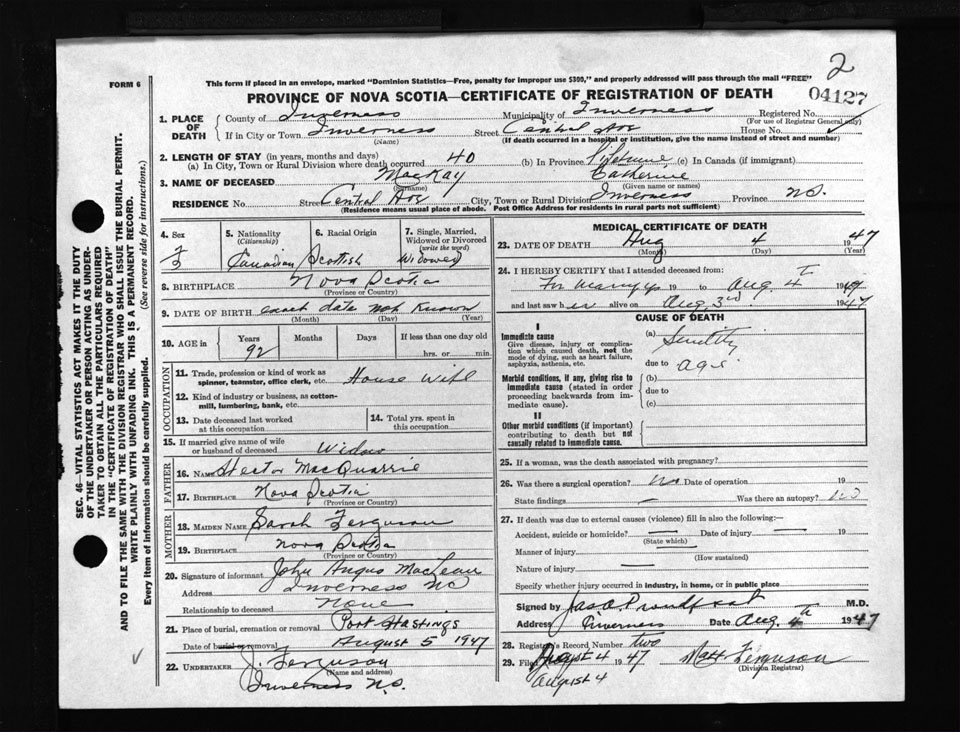 2
FORM 6
This form if placed in an envelope, marked "Dominion Statistics—Free, penalty for improper use $300," and properly addressed will pass through the mail "FREE"
PROVINCE OF NOVA SCOTIA—CERTIFICATE OF REGISTRATION OF DEATH
04127
1. PLACE OF DEATH
County of Inverness Municipality of Inverness Registered No.
(For use of Registrar General only)
If in City or Town Inverness Street Central Ave House No.
(Name) (If death occurred in a hospital or institution, give the name instead of street and number)
2. LENGTH OF STAY (in years, months and days)
(a) In City, Town or Rural Division where death occurred 40 (b) In Province Lifetime (c) In Canada (if immigrant)
3. NAME OF DECEASED MacKay Catherine
(Surname) (Given name or names)
RESIDENCE No. Street Central Ave City, Town or Rural Division Inverness Province N.S.
(Residence means usual place of abode. Post Office Address for residents in rural parts not sufficient)
4. Sex F
5. Nationality (Citizenship) Canadian
6. Racial Origin Scottish
7. Single, Married, Widowed or Divorced (write the word) Widowed
8. BIRTHPLACE Nova Scotia
(Province or Country)
9. DATE OF BIRTH exact date not known
(Month) (Day) (Year)
10. AGE in Years 92 Months Days If less than one day old
hrs. or min.
OCCUPATION
11. Trade, profession or kind of work as spinner, teamster, office clerk, etc. House Wife
12. Kind of industry or business, as cotton-mill, lumbering, bank, etc.
13. Date deceased last worked at this occupation
14. Total yrs. spent in this occupation
15. If married give name of wife or husband of deceased Widow
FATHER
16. NAME Hector MacQuarrie
17. BIRTHPLACE Nova Scotia
(Province or Country)
MOTHER
18. MAIDEN NAME Sarah Ferguson
19. BIRTHPLACE Nova Scotia
(Province or Country)
20. Signature of informant John Angus MacLean
Address Inverness NS
Relationship to deceased None
21. Place of burial, cremation or removal Port Hastings
Date of burial or removal August 5 1947
22. UNDERTAKER J. Ferguson
(Name and address)
Inverness N.S.
MEDICAL CERTIFICATE OF DEATH
23. DATE OF DEATH Aug 4 1947
(Month) (Day) (Year)
24. I HEREBY CERTIFY that I attended deceased from:
For many yrs 19 to Aug. 4th 1947
and last saw her alive on Aug. 3rd 1947
CAUSE OF DEATH
I
Immediate cause
Give disease, injury or complication which caused death, not the mode of dying, such as heart failure, asphyxia, asthenia, etc.
(a) Senility
due to age
Morbid conditions, if any, giving rise to immediate cause (stated in order proceeding backwards from immediate cause).
(b)
due to
(c)
II
Other morbid conditions (if important) contributing to death but not causally related to immediate cause.
25. If a woman, was the death associated with pregnancy?
26. Was there a surgical operation? No Date of operation 19
State findings — Was there an autopsy? No
27. If death was due to external causes (violence) fill in also the following:—
Accident, suicide or homicide? — Date of injury — 19
(State which)
Manner of injury
(How sustained)
Nature of injury —
Specify whether injury occurred in industry, in home, or in public place
Signed by Jas. A. Proudfoot M.D.
Address Inverness Date Aug. 4th 1947
28. Registrar's Record Number two
29. Filed August 4 1947 Matt Ferguson
(Division Registrar)
August 4
SEC. 46—VITAL STATISTICS ACT MAKES IT THE DUTY
OF THE UNDERTAKER OR PERSON ACTING AS UNDER-
TAKER TO OBTAIN ALL THE PARTICULARS REQUIRED
IN THE "CERTIFICATE OF REGISTRATION OF DEATH"
AND TO FILE THE SAME WITH THE DIVISION REGISTRAR WHO SHALL ISSUE THE BURIAL PERMIT.
WRITE PLAINLY WITH UNFADING INK. THIS IS A PERMANENT RECORD.
Every item of information should be carefully supplied. (See reverse side for instructions.)